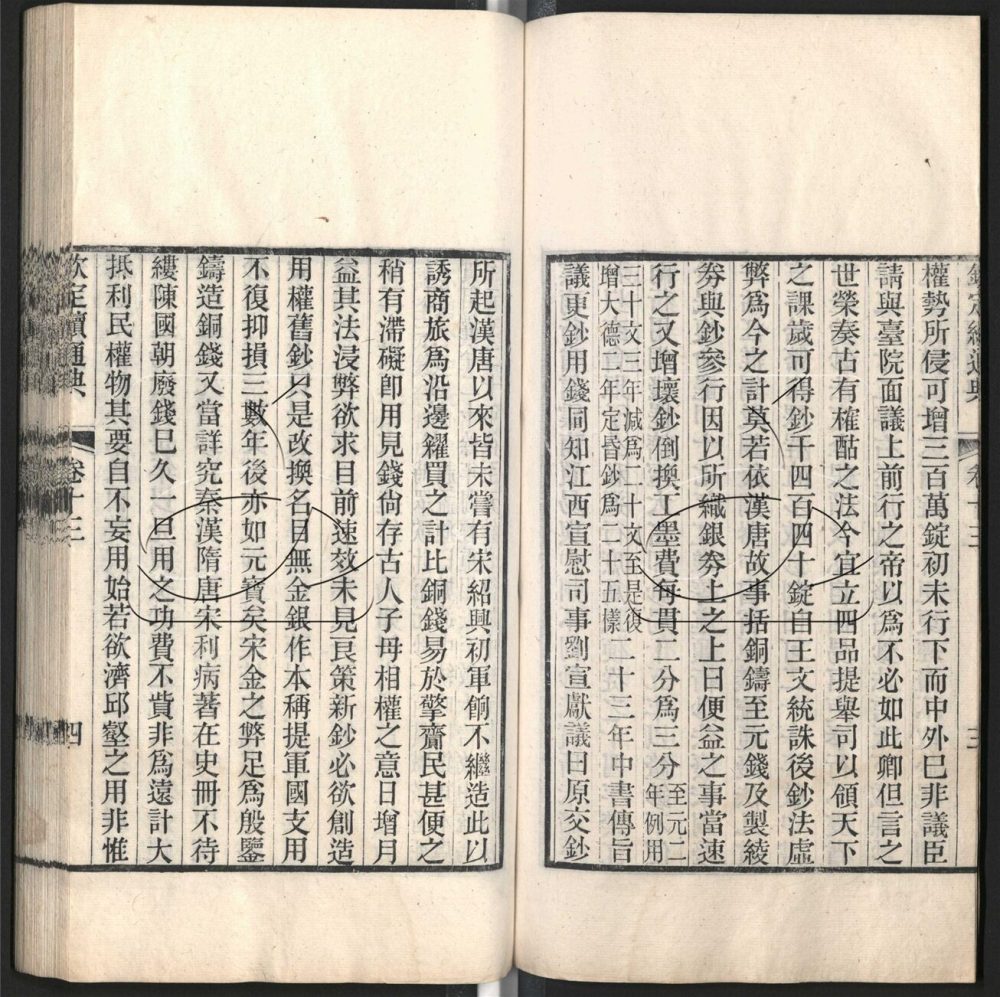 欽定續通典 卷十三 三
權勢所侵可增三百萬錠初未行下而中外已非議臣
請與臺院面議上前行之帝以為不必如此卿但言之
世榮奏古有榷酤之法今宜立四品提舉司以領天下
之課歲可得鈔千四百四十錠自王文統誅後鈔法虛
弊為今之計莫若依漢唐故事括銅鑄至元錢及製綾
券與鈔參行因以所織銀券上之上曰便益之事當速
行之又增壞鈔倒換工墨費每貫二分為三分至元二年例用
三十文三年減為二十文至是復
增大德二年定昏鈔為二十五樣二十三年中書傳旨
議更鈔用錢同知江西宣慰司事劉宣獻議曰原交鈔
所起漢唐以來皆未嘗有宋紹興初軍餉不繼造此以
誘商旅為沿邊糴買之計比銅錢易於擎齎民甚便之
稍有滯礙卽用見錢尚存古人子母相權之意日增月
益其法浸弊欲求目前速效未見良策新鈔必欲創造
用權舊鈔只是改換名目無金銀作本稱提軍國支用
不復抑損三數年後亦如元寶矣宋金之弊足為殷鑒
鑄造銅錢又當詳究秦漢隋唐宋利病著在史冊不待
縷陳國朝廢錢已久一旦用之功費不貲非為遠計大
抵利民權物其要自不妄用始若欲濟邱壑之用非惟
欽定續通典 卷十三 四